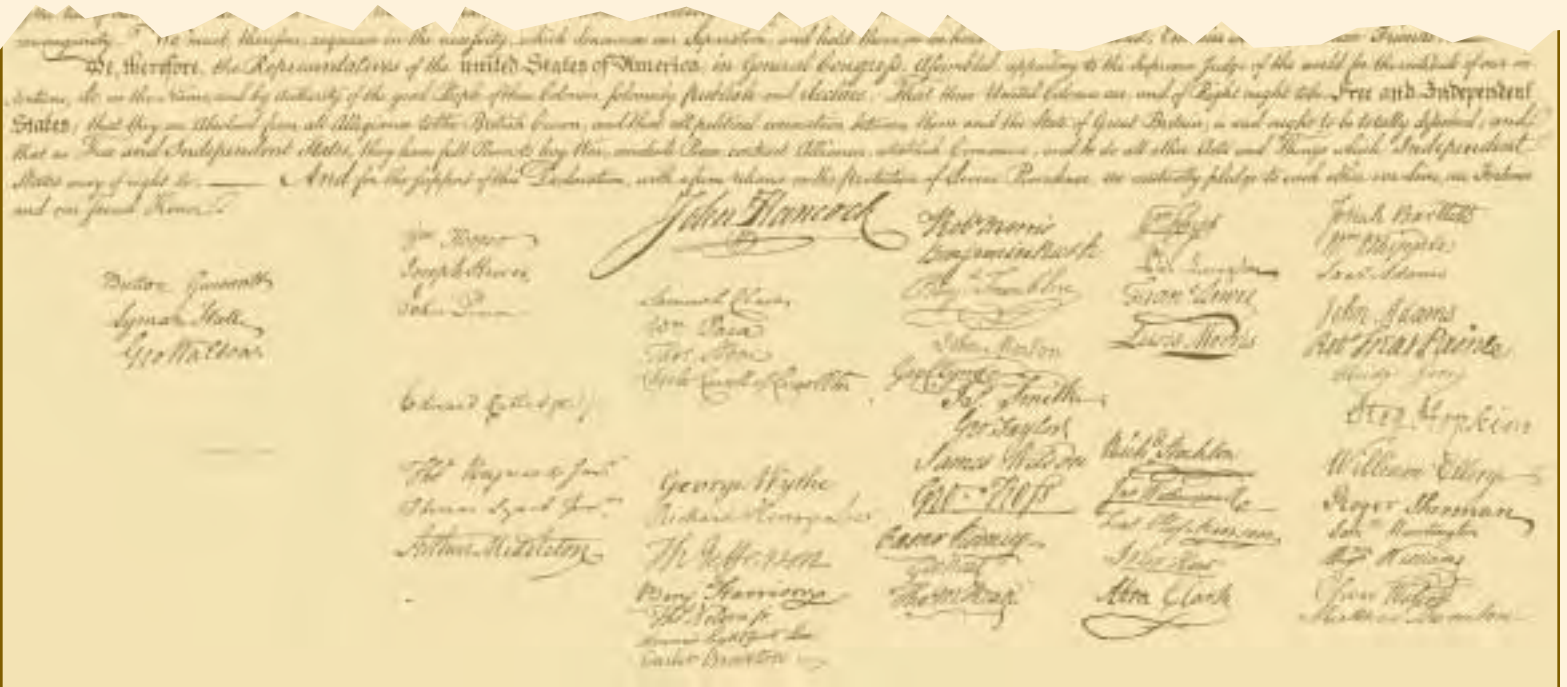 We must, therefore, acquiesce in the necessity, which denounces our Separation, and hold them, as we hold
We, therefore, the Representatives of the united States of America, in General Congress, Assembled, appealing to the Supreme Judge of the world for the rectitude of our in-
tentions, do, in the Name, and by Authority of the good People of these Colonies, solemnly publish and declare, That these United Colonies are, and of Right ought to be Free and Independent
States; that they are Absolved from all Allegiance to the British Crown, and that all political connection between them and the State of Great Britain, is and ought to be totally dissolved; and
that as Free and Independent States, they have full Power to levy War, conclude Peace, contract Alliances, establish Commerce, and to do all other Acts and Things which Independent
States may of right do. — And for the support of this Declaration, with a firm reliance on the protection of divine Providence, we mutually pledge to each other our Lives, our Fortunes
and our sacred Honor.
Button Gwinnett
Lyman Hall
Geo Walton
Wm Hooper
Joseph Hewes
John Penn
Edward Rutledge
Thos Heyward Junr
Thomas Lynch Junr
Arthur Middleton
John Hancock
Samuel Chase
Wm Paca
Thos Stone
Charles Carroll of Carrollton
George Wythe
Richard Henry Lee
Th Jefferson
Benj Harrison
Thos Nelson jr
Francis Lightfoot Lee
Carter Braxton
Robt Morris
Benjamin Rush
Benj Franklin
John Morton
Geo Clymer
Jas Smith
Geo Taylor
James Wilson
Geo Ross
Caesar Rodney
Geo Read
Tho M:Kean
Wm Floyd
Phil Livingston
Frans Lewis
Lewis Morris
Richd Stockton
Jno Witherspoon
Fras Hopkinson
John Hart
Abra Clark
Josiah Bartlett
Wm Whipple
Saml Adams
John Adams
Robt Treat Paine
Elbridge Gerry
Step Hopkins
William Ellery
Roger Sherman
Saml Huntington
Wm Williams
Oliver Wolcott
Matthew Thornton